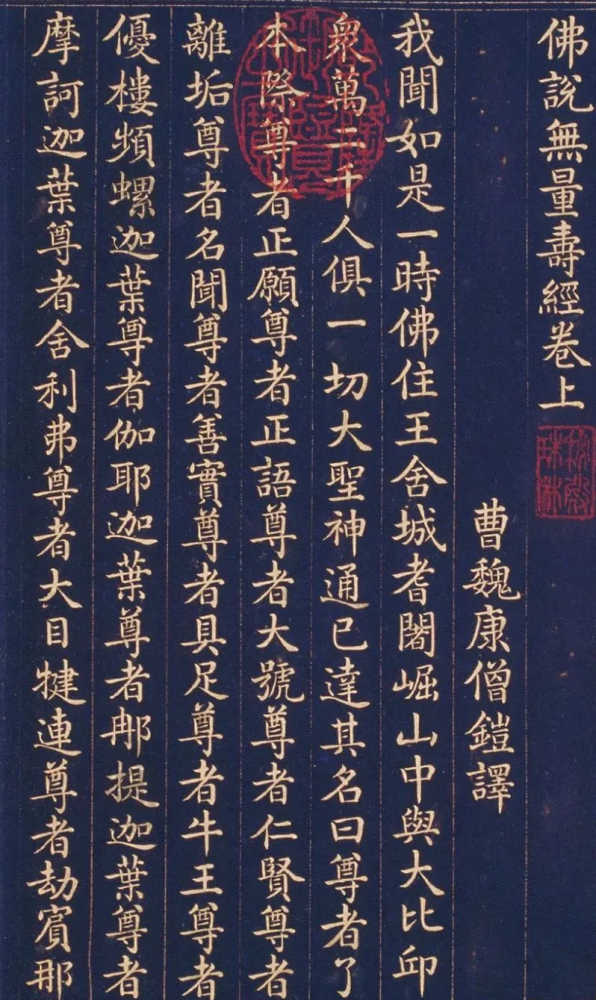 佛說無量壽經卷上
曹魏康僧鎧譯
我聞如是一時佛住王舍城耆闍崛山中與大比邱
衆萬二千人俱一切大聖神通已達其名曰尊者了
本際尊者正願尊者正語尊者大號尊者仁賢尊者
離垢尊者名聞尊者善實尊者具足尊者牛王尊者
優樓頻螺迦葉尊者伽耶迦葉尊者郍提迦葉尊者
摩訶迦葉尊者舍利弗尊者大目犍連尊者劫賓那